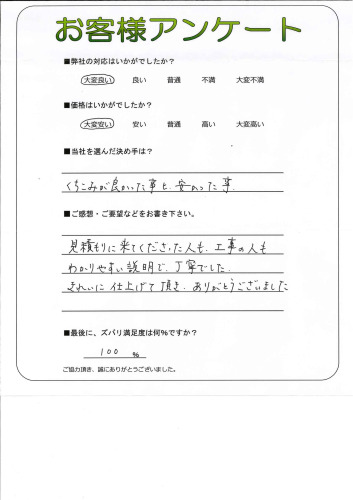 お客様アンケート
■弊社の対応はいかがでしたか？
大変良い 良い 普通 不満 大変不満
■価格はいかがでしたか？
大変安い 安い 普通 高い 大変高い
■当社を選んだ決め手は？
くちこみが良かった事と、安かった事。
■ご感想・ご要望などをお書き下さい。
見積もりに来てくださった人も、工事の人も
わかりやすい説明で、丁寧でした。
きれいに仕上げて頂き、ありがとうございました
■最後に、ズバリ満足度は何%ですか？
100 %
ご協力頂き、誠にありがとうございました。